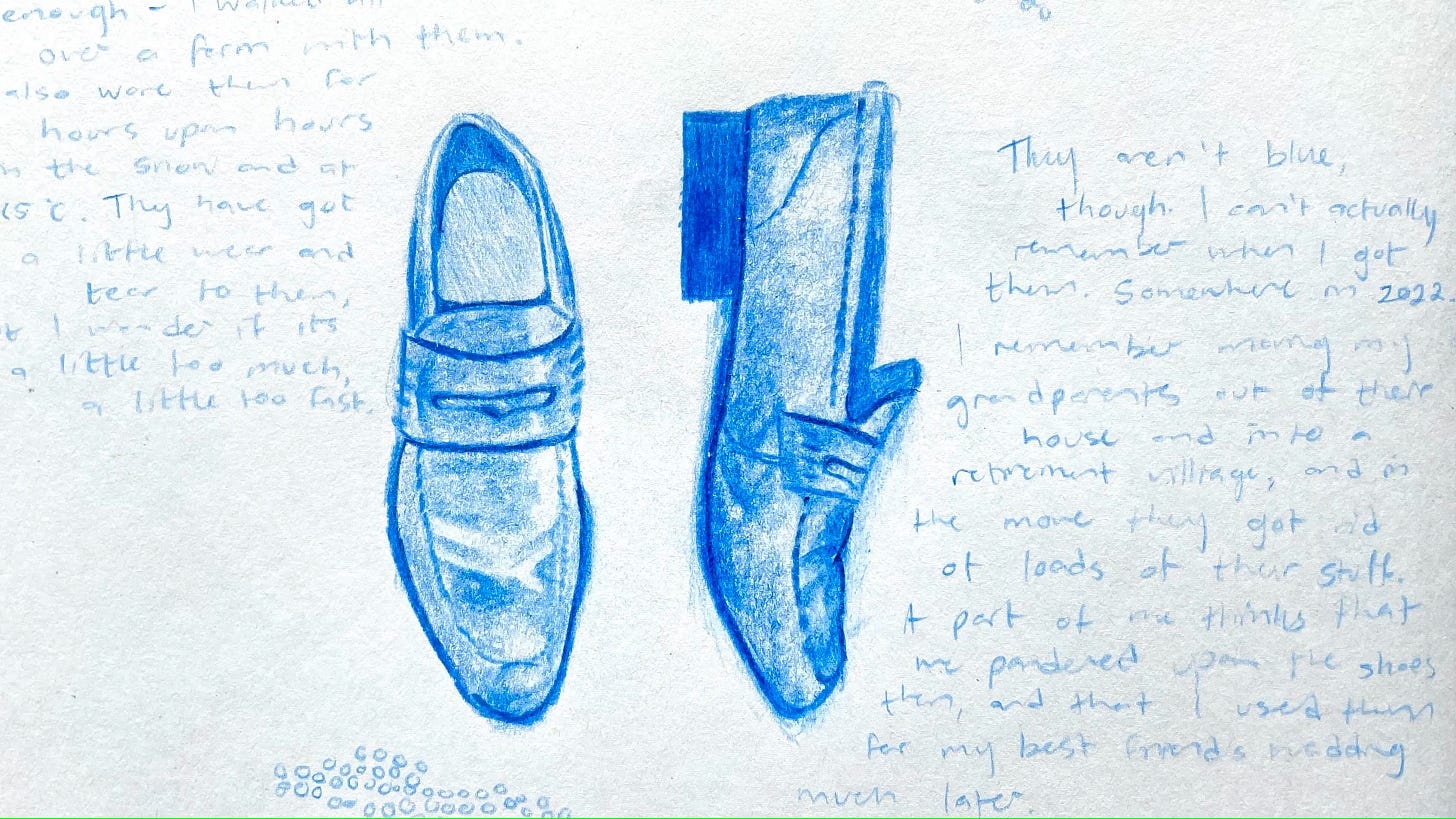 enough - I walked all
over a farm with them.
also wore them for
hours upon hours
in the snow and at
15°C. They have got
a little wear and
tear to them,
I wonder if its
a little too much,
a little too fast.
They aren't blue,
though. I can't actually
remember when I got
them. Somewhere in 2022
I remember moving my
grandparents out of their
house and into a
retirement villiage, and in
the move they got rid
of loads of their stuff.
A part of me thinks that
we pandered upon the shoes
then, and that I used them
for my best friends wedding
much later.